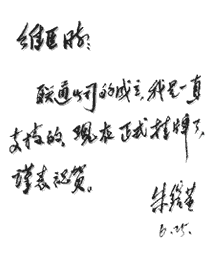 维匡同志:
联通公司的成立,我是一直
支持的,现在正式挂牌了,
谨表祝贺。
朱镕基
6.25.